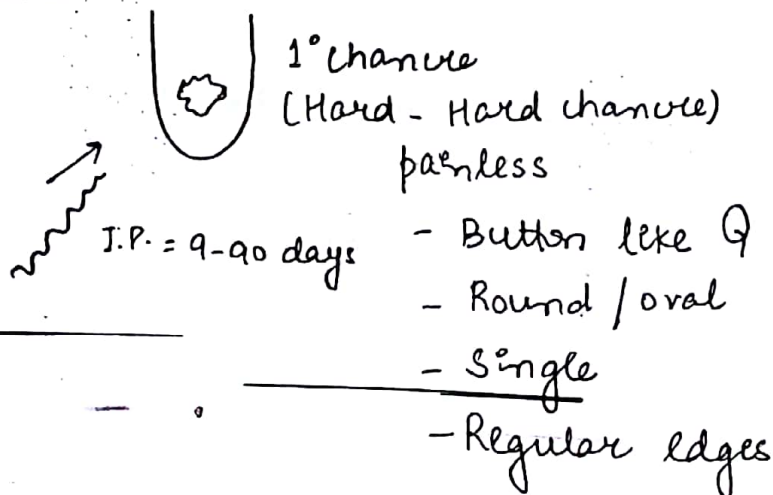 1° chancre
(Hard - Hard chancre)
painless
I.P. = 9-90 days
- Button like Q
- Round / oval
- Single
- Regular edges